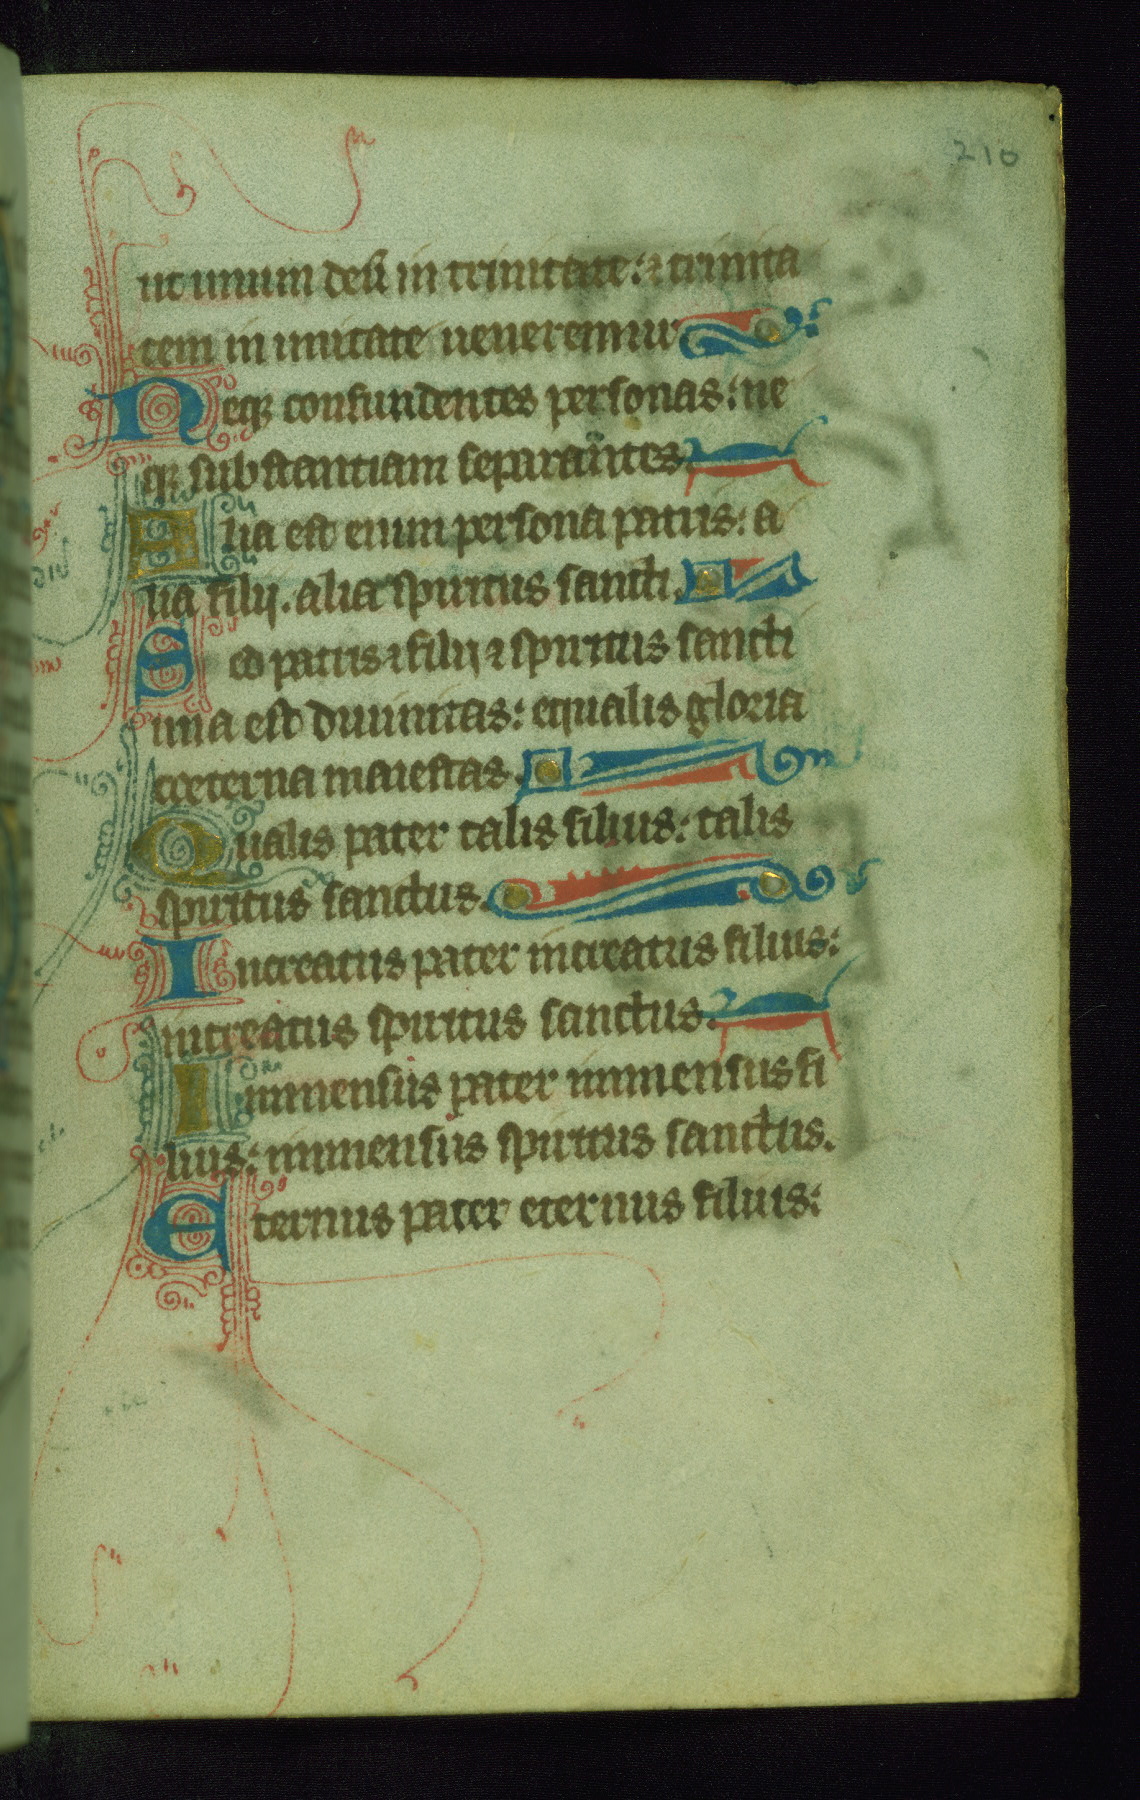 210
ut unum deū in trinitate: ⁊ trinita
tem in unitate ueneremur
Neqꝫ confundentes personas: ne
qꝫ substantiam separantes.
Alia est enim persona patris: a
lia filij. alia spiritus sancti.
Sed patris ⁊ filij ⁊ spiritus sancti
una est diuinitas: equalis gloria
coeterna maiestas.
Qualis pater talis filius: talis
spiritus sanctus.
Increatus pater increatus filius:
increatus spiritus sanctus.
Inmensus pater inmensus fi
lius: inmensus spiritus sanctus.
Eternus pater eternus filius: